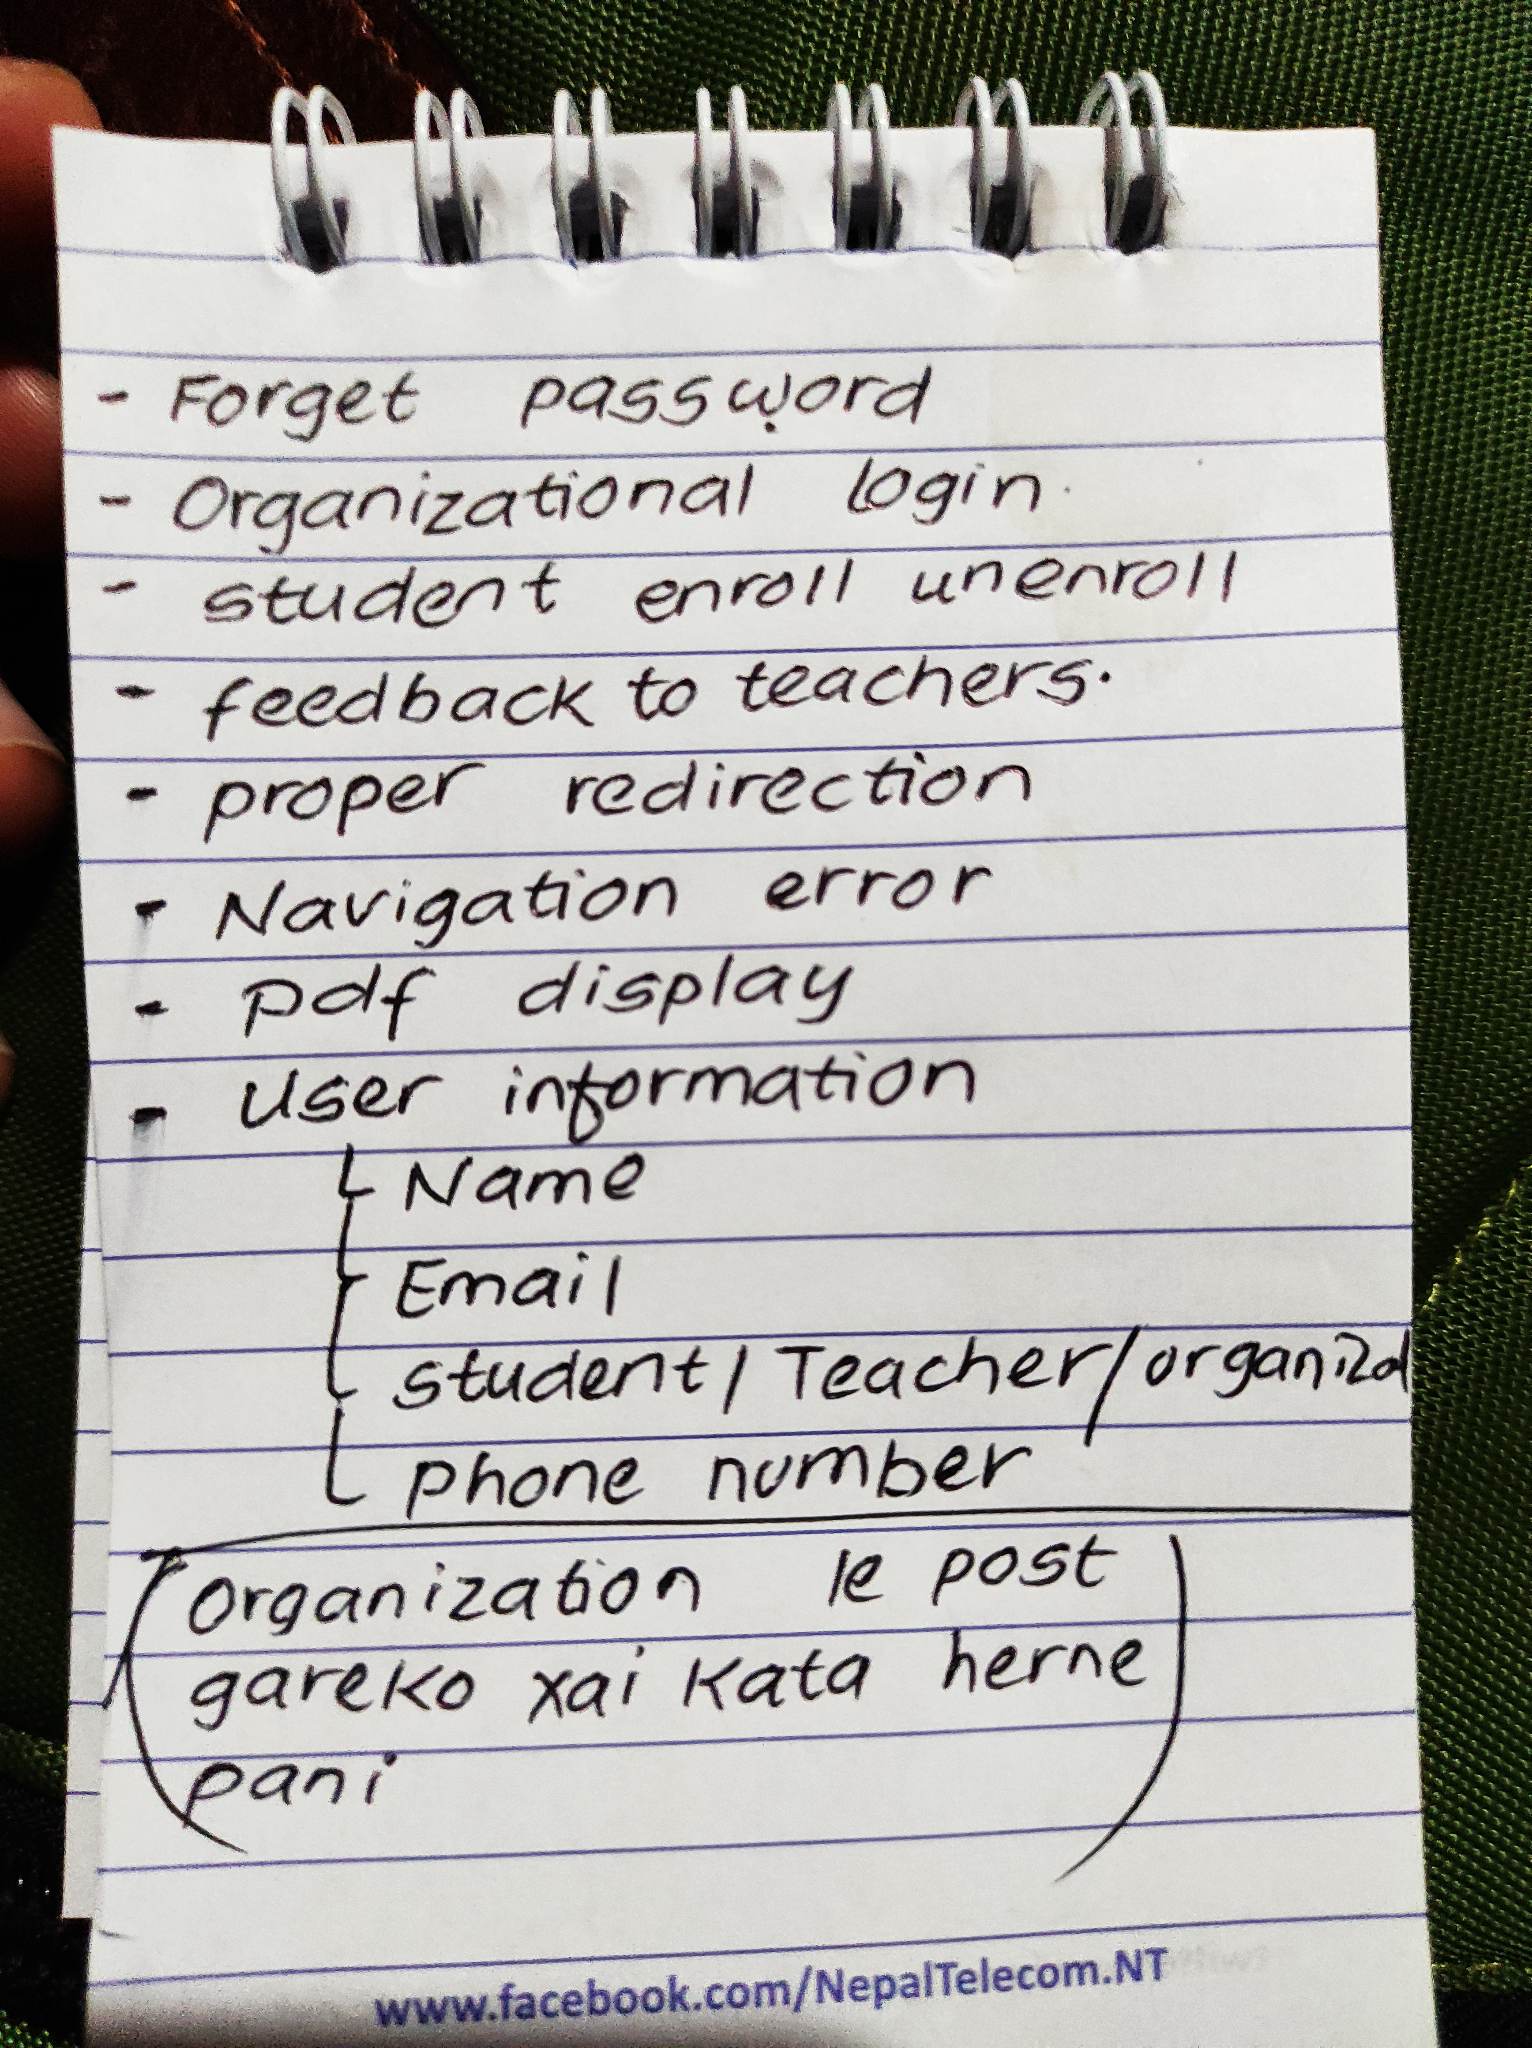 - Forget password
- Organizational login.
- student enroll unenroll
- feedback to teachers.
- proper redirection
- Navigation error
- pdf display
- user information
Name
Email
student/Teacher/organiza
phone number
(organization le post
gareko xai kata herne
pani)
www.facebook.com/NepalTelecom.NT